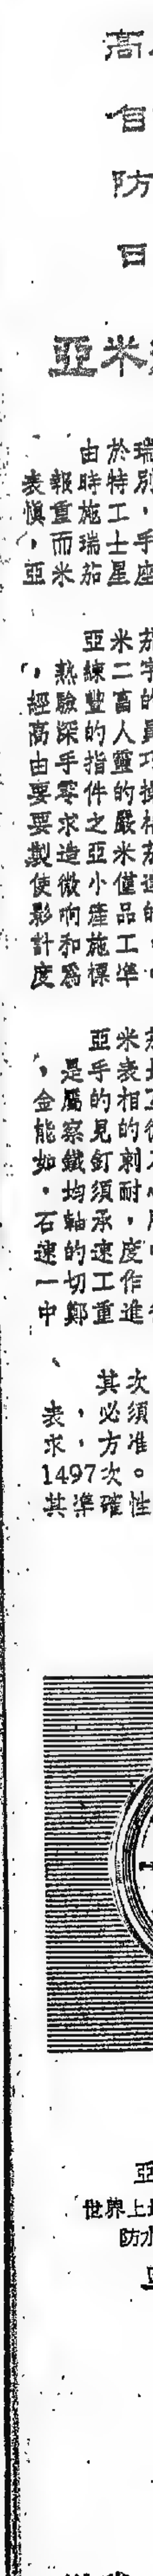 高
自
防
日
亞米
由於瑞
表報時特別
慎重施工,
,而瑞士手
亞米茄星座
亞米茄
,熟練二字
經驗豐富的
高深的人員
由手指靈巧
要零件的
要求之嚴
製造亞米茄
使微小僅造
影响產品的
計和施工,
度為標準
亞米茄
,是手表
金屬的相互
能察見的
如鐵釘刺
。均須耐心
石軸承,用
速的速度
一切工作
中鄭重進行
其次
表,必須
求,方准
1497次。
其準確性
亞
世界上
防水